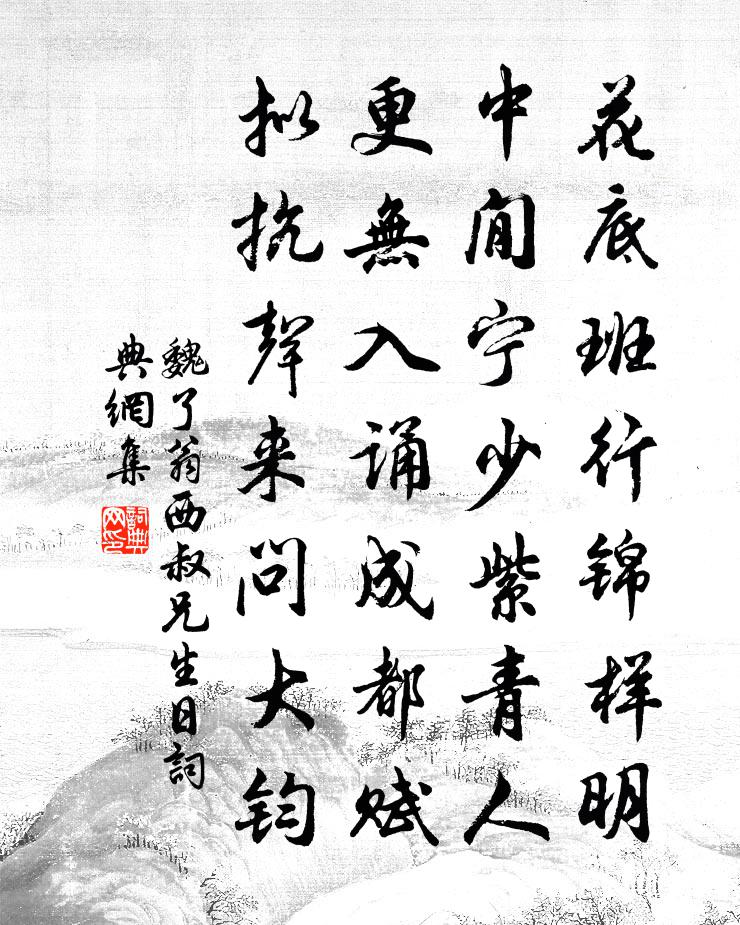 花底班行锦样明
中间宁少紫青人
更無入诵成都赋
拟抗聲来问大钧
魏了翁西叔兄生日詞
典網集
詞典网印